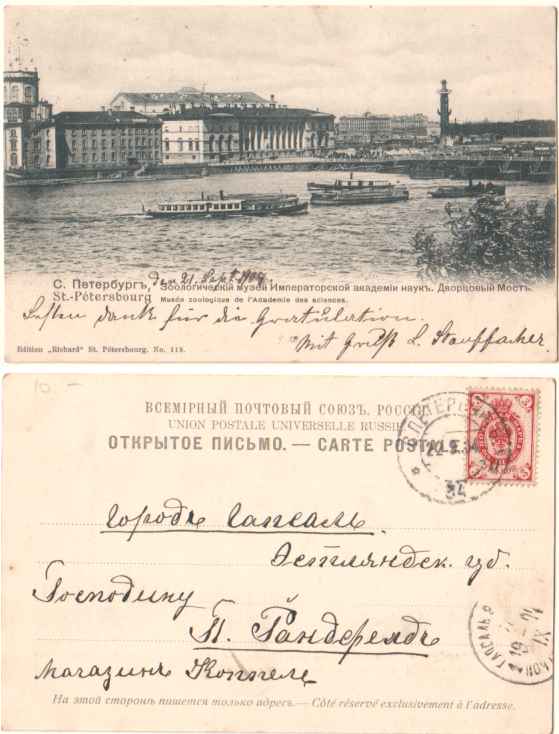 С. Петербургъ,
den 21. Sept. 1904.
Зоологическій музей Императорской академіи наукъ. Дворцовый Мостъ.
St.-Pétersbourg
Musée zoologique de l'Academie des sciences.
besten dank für die Gratulation.
Mit Gruß L. Stauffacher
Edition „Richard" St. Pétersbourg. No. 118.
10.-
ВСЕМІРНЫЙ ПОЧТОВЫЙ СОЮЗЪ. РОССІЯ
UNION POSTALE UNIVERSELLE RUSSIE
ОТКРЫТОЕ ПИСЬМО. — CARTE POSTALE
34
Городъ Гапсаль.
Эстляндск. губ.
Господину
П. Гандерельдъ
магазинъ Коппеле
ГАПСАЛЬ
На этой сторонѣ пишется только адресъ.— Côté réservé exclusivement à l'adresse.